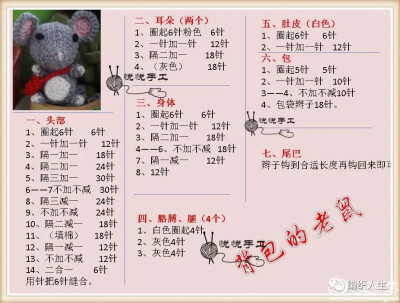 一、头部
1、圈起6针 6针
2、一针加一针 12针
3、隔一加一 18针
4、隔二加一 24针
5、隔三加一 30针
6——7不加不减 30针
8、隔三减一 24针
9、不加不减 24针
10、隔二减一 18针
11、（填棉） 18针
12、隔一减一 12针
13、不加不减 12针
14、二合一 6针
用针把6针缝合。
二、耳朵（两个）
1、圈起6针粉色 6针
2、一针加一针 12针
3、隔二加一 18针
4、（灰色） 18针
悦悦手工
三、身体
1、圈起6针 6针
2、一针加一针 12针
3、隔二加一 18针
4—6、不加不减 18针
7、隔一减一 12针
8、12针
四、胳膊、腿（4个）
1、白色圈起4针
2、灰色4针
3、灰色4针
悦悦手工
五、肚皮（白色）
1、圈起6针 6针
2、一针加一针 12针
六、包
1、圈起5针 5针
2、一针加一针 10针
3——4、不加不减10针
4、包袋辫子18针。
悦悦手工
七、尾巴
辫子钩到合适长度再钩回来即可
背包的老鼠
编织人生